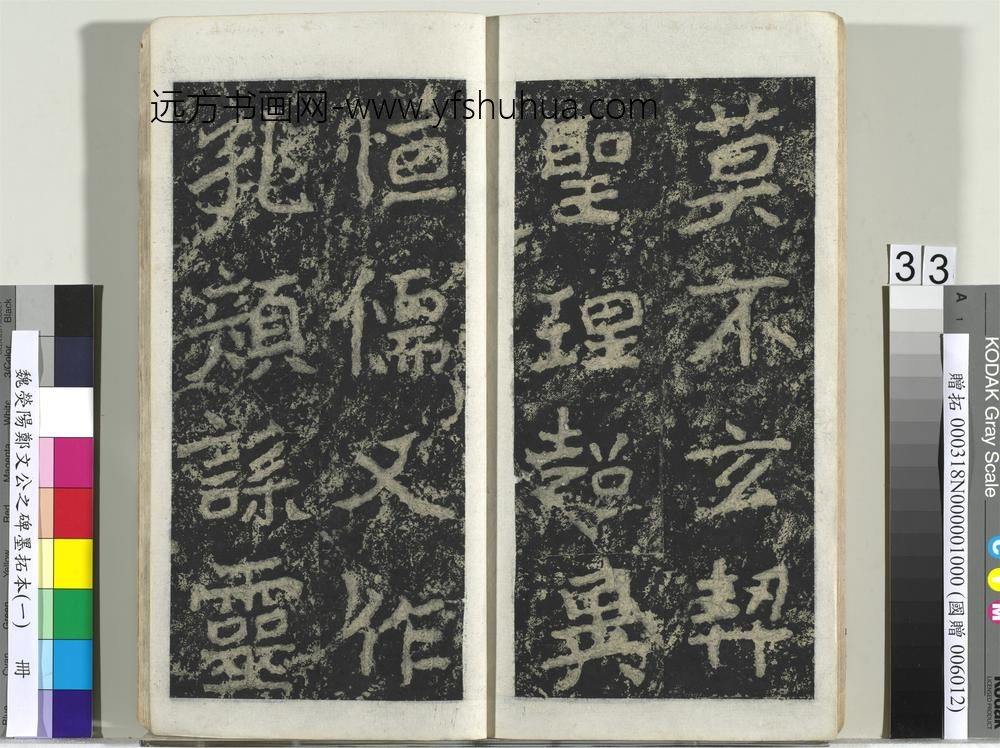 远方书画网-www.yfshuhua.com
莫不玄契
聖理超異
恒儒又作
孔顏誄靈
33
贈拓 000318N000001000 (國贈 006012)
KODAK Gray Scale
A 1
C
Y
M
魏滎陽鄭文公之碑墨拓本(一) 冊
Black
3/Color
White
Magenta
Red
Yellow
Green
Cyan
Blue